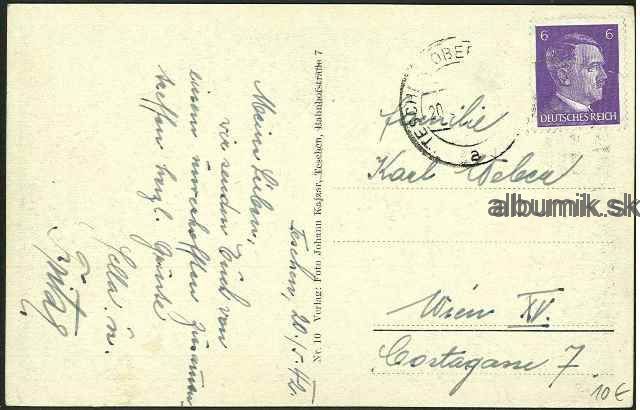 Teschen, 20./5. 42.
Meine Lieben,
wir senden Euch von
einem
treffen herzl. Grüsse
Fritz
Nr. 10 Verlag: Foto Johann Kajzar, Teschen, Bahnhofstraße 7
TESCH OBER
20
a
6 6
DEUTSCHES REICH
Familie
Karl
albumik.sk
Wien XV.
7
10€